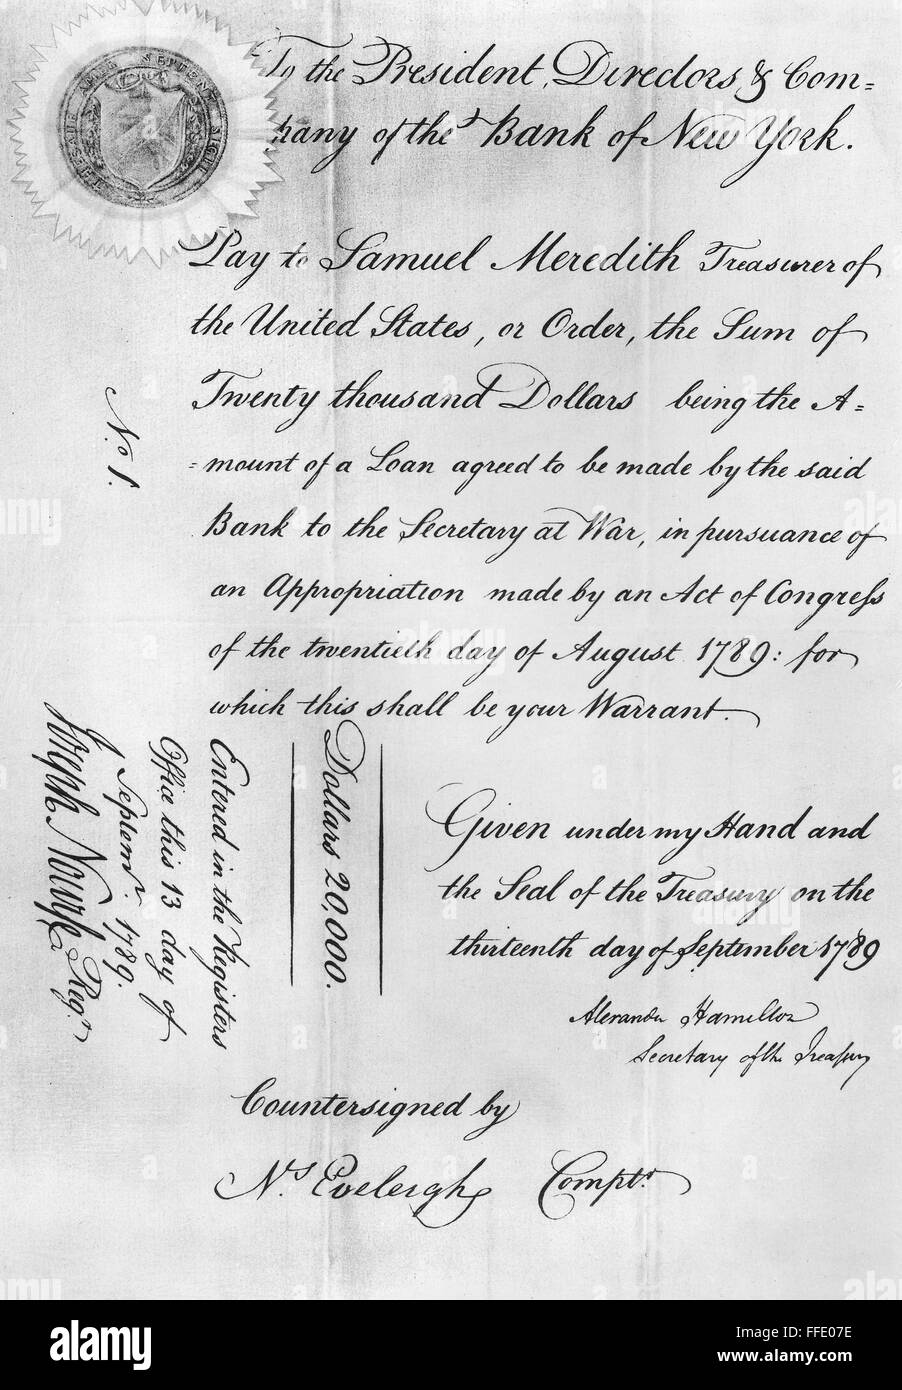 To the President, Directors & Com=
pany of the Bank of New York.
Pay to Samuel Meredith Treasurer of
the United States, or Order, the Sum of
Twenty thousand Dollars being the A=
=mount of a Loan agreed to be made by the said
Bank to the Secretary at War, in pursuance of
an Appropriation made by an Act of Congress
of the twentieth day of August 1789: for
which this shall be your Warrant.
No 1.
Dollars 20,000.
Entered in the Registers
Office this 13 day of
Septemr. 1789.
Joseph Nourse Regr.
Given under my Hand and
the Seal of the Treasury on the
thirteenth day of September 1789
Alexander Hamilton
Secretary of the Treasury
Countersigned by
Ns. Eveleigh Comptr.
alamy
Image ID: FFE07E
www.alamy.com